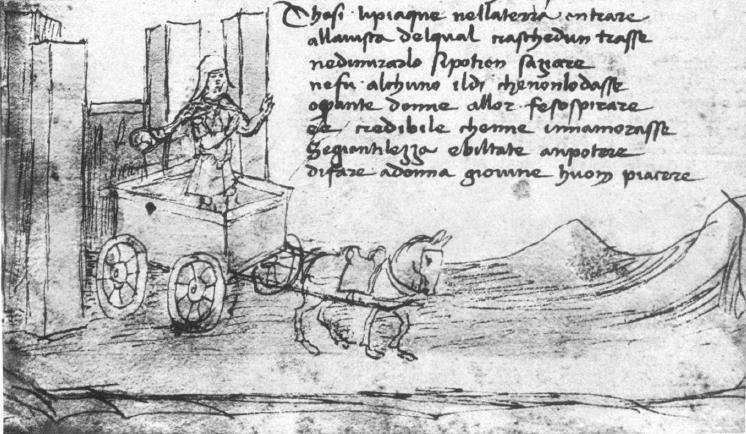 Chosi lipiaque nellaterra entrare
allauista delqual ciaschedun trasse
nedimirarlo sipotien saziare
nefu alchuno ildi chenonlodasse
oquante donne allor fesospirare
credibile chenne innamorasse
segientilezza ebiltate anpotere
difare adonna giouine huom piacere